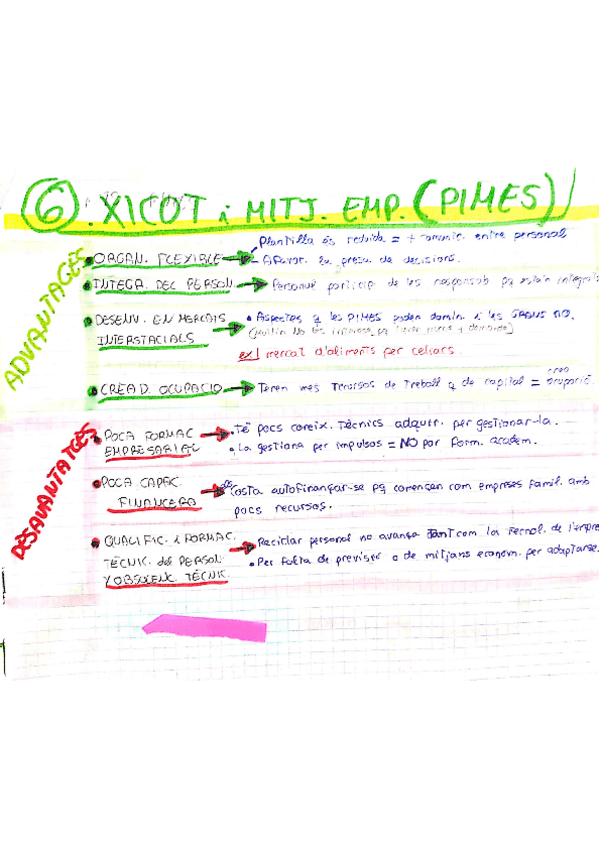 6. XICOT i MITJ. EMP. (PIMES)
ADVANTAGES
Plantilla és reduïda = + comunic. entre personal
ORGAN. FLEXIBLE → - Afavor. la presa de decisions.
INTEGRA. DEL PERSON. → Personal particip de les responsab pq estàn integrats
DESENV. EN MERCATS → • Aspectes q les PIMES poden domin. i les GRANS NO.
INTERSTACIALS
ex/ mercat d'aliments per celiacs.
crea
CREA D. OCUPACIÓ → Tenen més recursos de treball q de capital = ocupació.
DESAVANTATGES
POCA FORMAC → • Té pocs coneix. tècnics adquir. per gestionar-la.
EMPRESARIAL • La gestiona per impulsos = NO por form. acadèm.
POCA CAPAC. → Costa autofinançar-se pq comencen com empreses famil. amb
FINANCERA pocs recursos.
QUALIFIC. i FORMAC. → • Reciclar personal no avança TANT com la tecnol. de l'empre
TÈCNIC. del PERSON. • Per falta de previsió o de mitjans econòm. per adaptarse.
Y OBSOLENC. TÉCNIC.